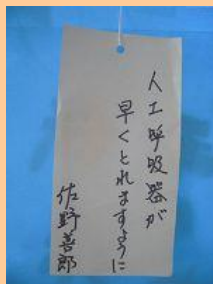 人工呼吸器が
早くとれますように
佐野善郎